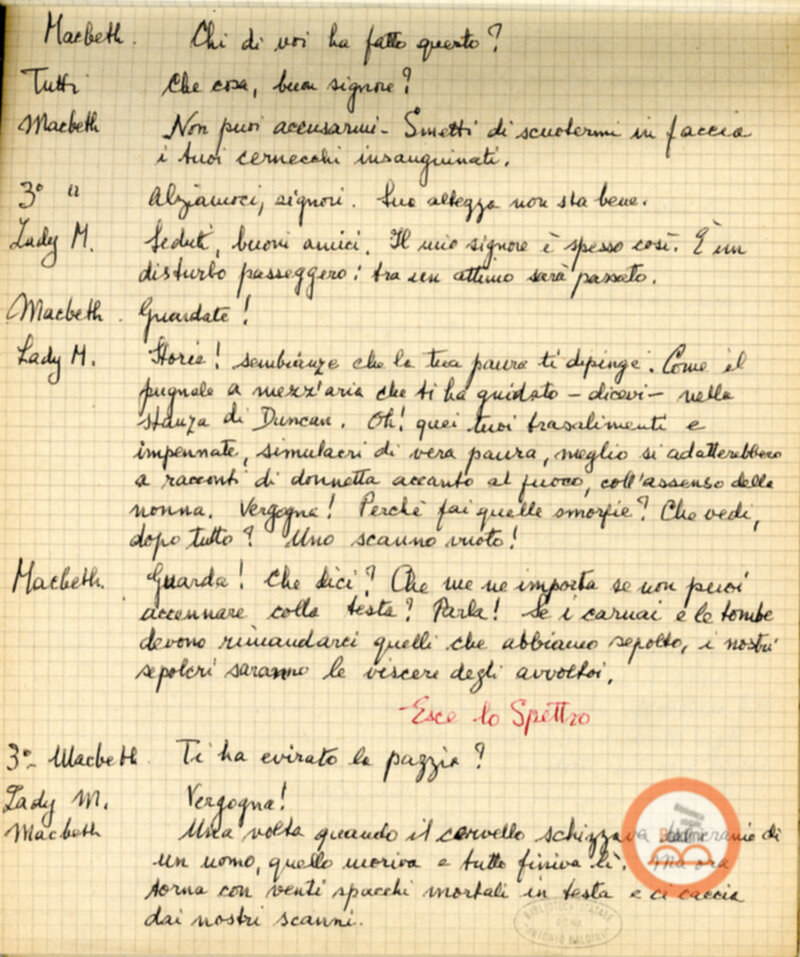 Macbeth. Chi di voi ha fatto questo?
Tutti Che cosa, buon signore?
Macbeth Non puoi accusarmi - Smetti di scuotermi in faccia
i tuoi cernecchi insanguinati.
3° " Alziamoci, signori. Sua altezza non sta bene.
Lady M. Seduti, buoni amici. Il mio signore è spesso così. È un
disturbo passeggero: tra un attimo sarà passato.
Macbeth. Guardate!
Lady M. Storie! sembianze che la tua paura ti dipinge. Come il
pugnale a mezz'aria che ti ha guidato - dicevi - nella
stanza di Duncan. Oh! quei tuoi trasalimenti e
impennate, simulacri di vera paura, meglio si adatterebbero
a racconti di donnetta accanto al fuoco, coll'assenso della
nonna. Vergogna! Perchè fai quelle smorfie? Che vedi,
dopo tutto? Uno scanno vuoto!
Macbeth. Guarda! Che dici? Che me ne importa se non puoi
accennare colla testa? Parla! Se i carnai e le tombe
devono rimandarci quelli che abbiamo sepolto, i nostri
sepolcri saranno le viscere degli avvoltoi.
Esce lo Spettro
3° - Macbeth. Ti ha evirato la pazzia?
Lady M. Vergogna!
Macbeth Una volta quando il cervello schizzava cranio di
un uomo, quello moriva e tutto finiva lì. Ma ora
torna con venti spacchi mortali in testa e ci caccia
dai nostri scanni.